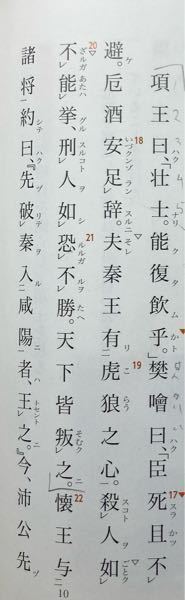 項王曰、「壮士。能復飲乎。」樊噲曰、「臣死且不
避。卮酒安足辞。夫秦王有虎狼之心。殺人如
不能挙、刑人如恐不勝。天下皆叛之。懐王与
諸将約曰、『先破秦入咸陽者、王之。』今、沛公先
17
18
19
20
21
22
10